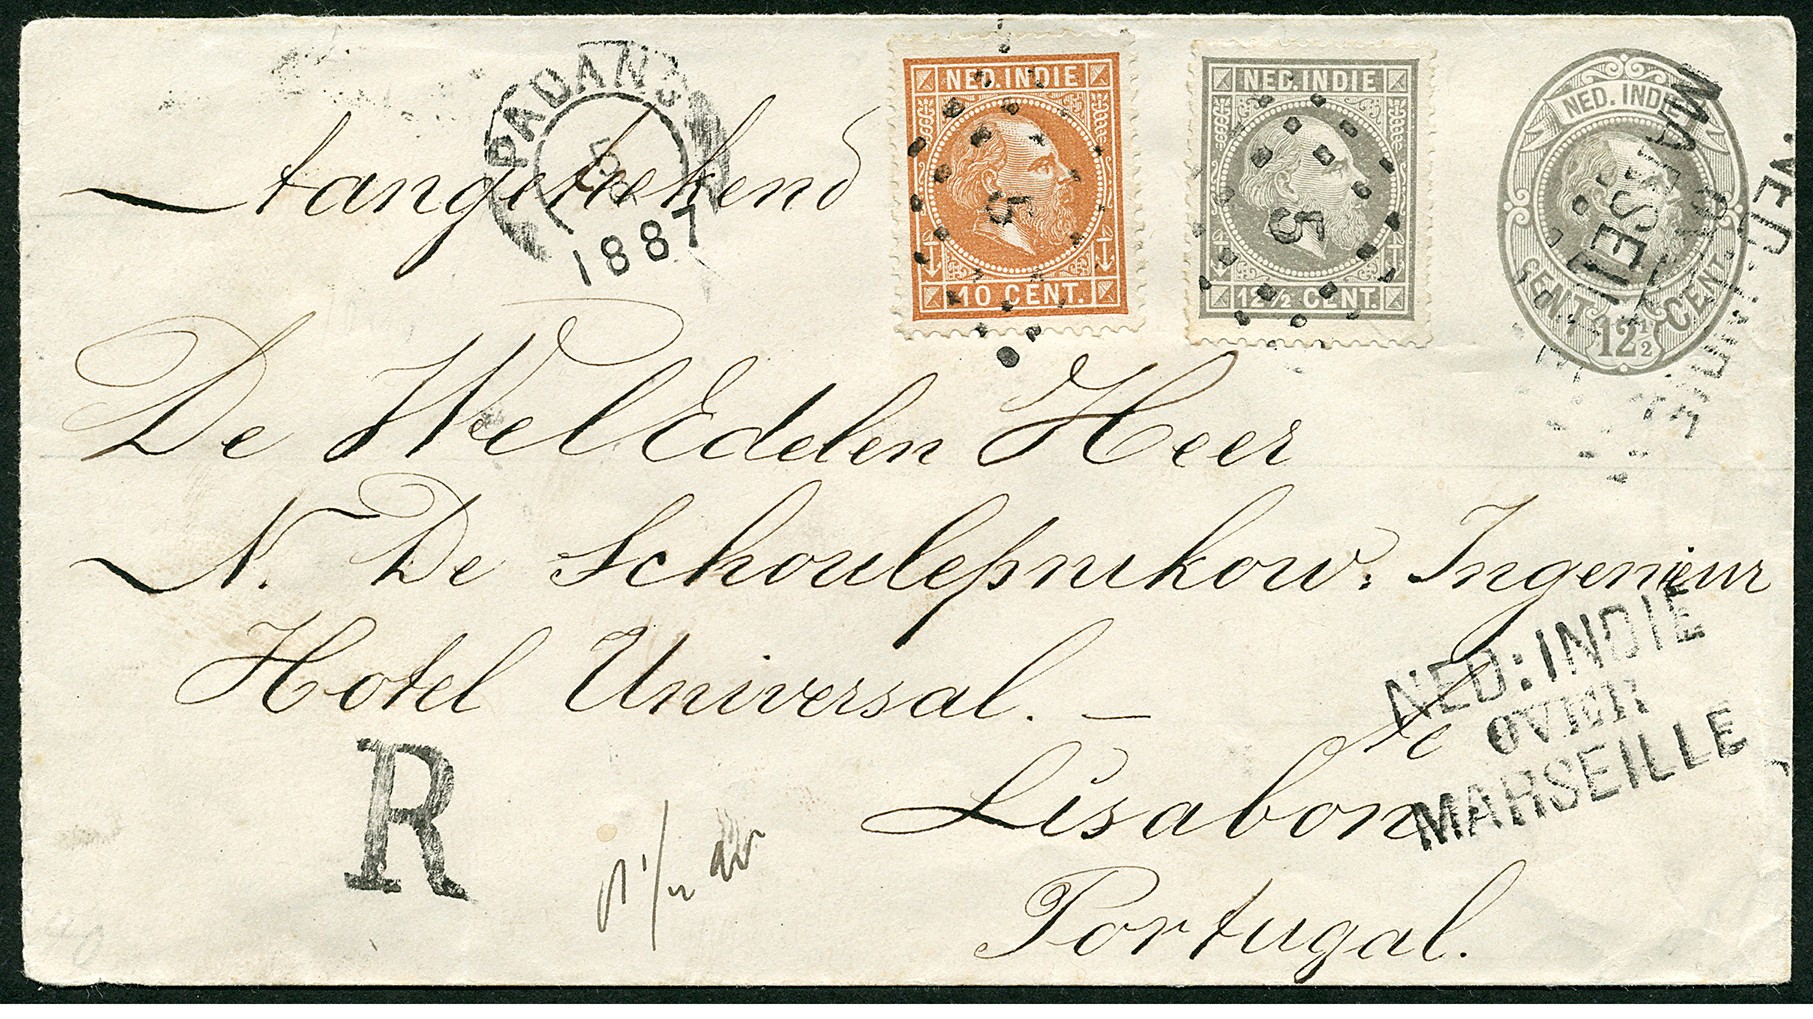 PADANG
5
1887
Aangeteekend
NED. INDIE
5
10 CENT.
NED. INDIE
5
12½ CENT.
NED. INDIE
CENT. 12½ CENT.
NED: INDIE
MARSEILLE
De WelEdelen Heer
N. De Schoulepnikow. Ingenieur
Hotel Universal. –
te
Lisabon
Portugal.
R
NED: INDIE
OVER
MARSEILLE